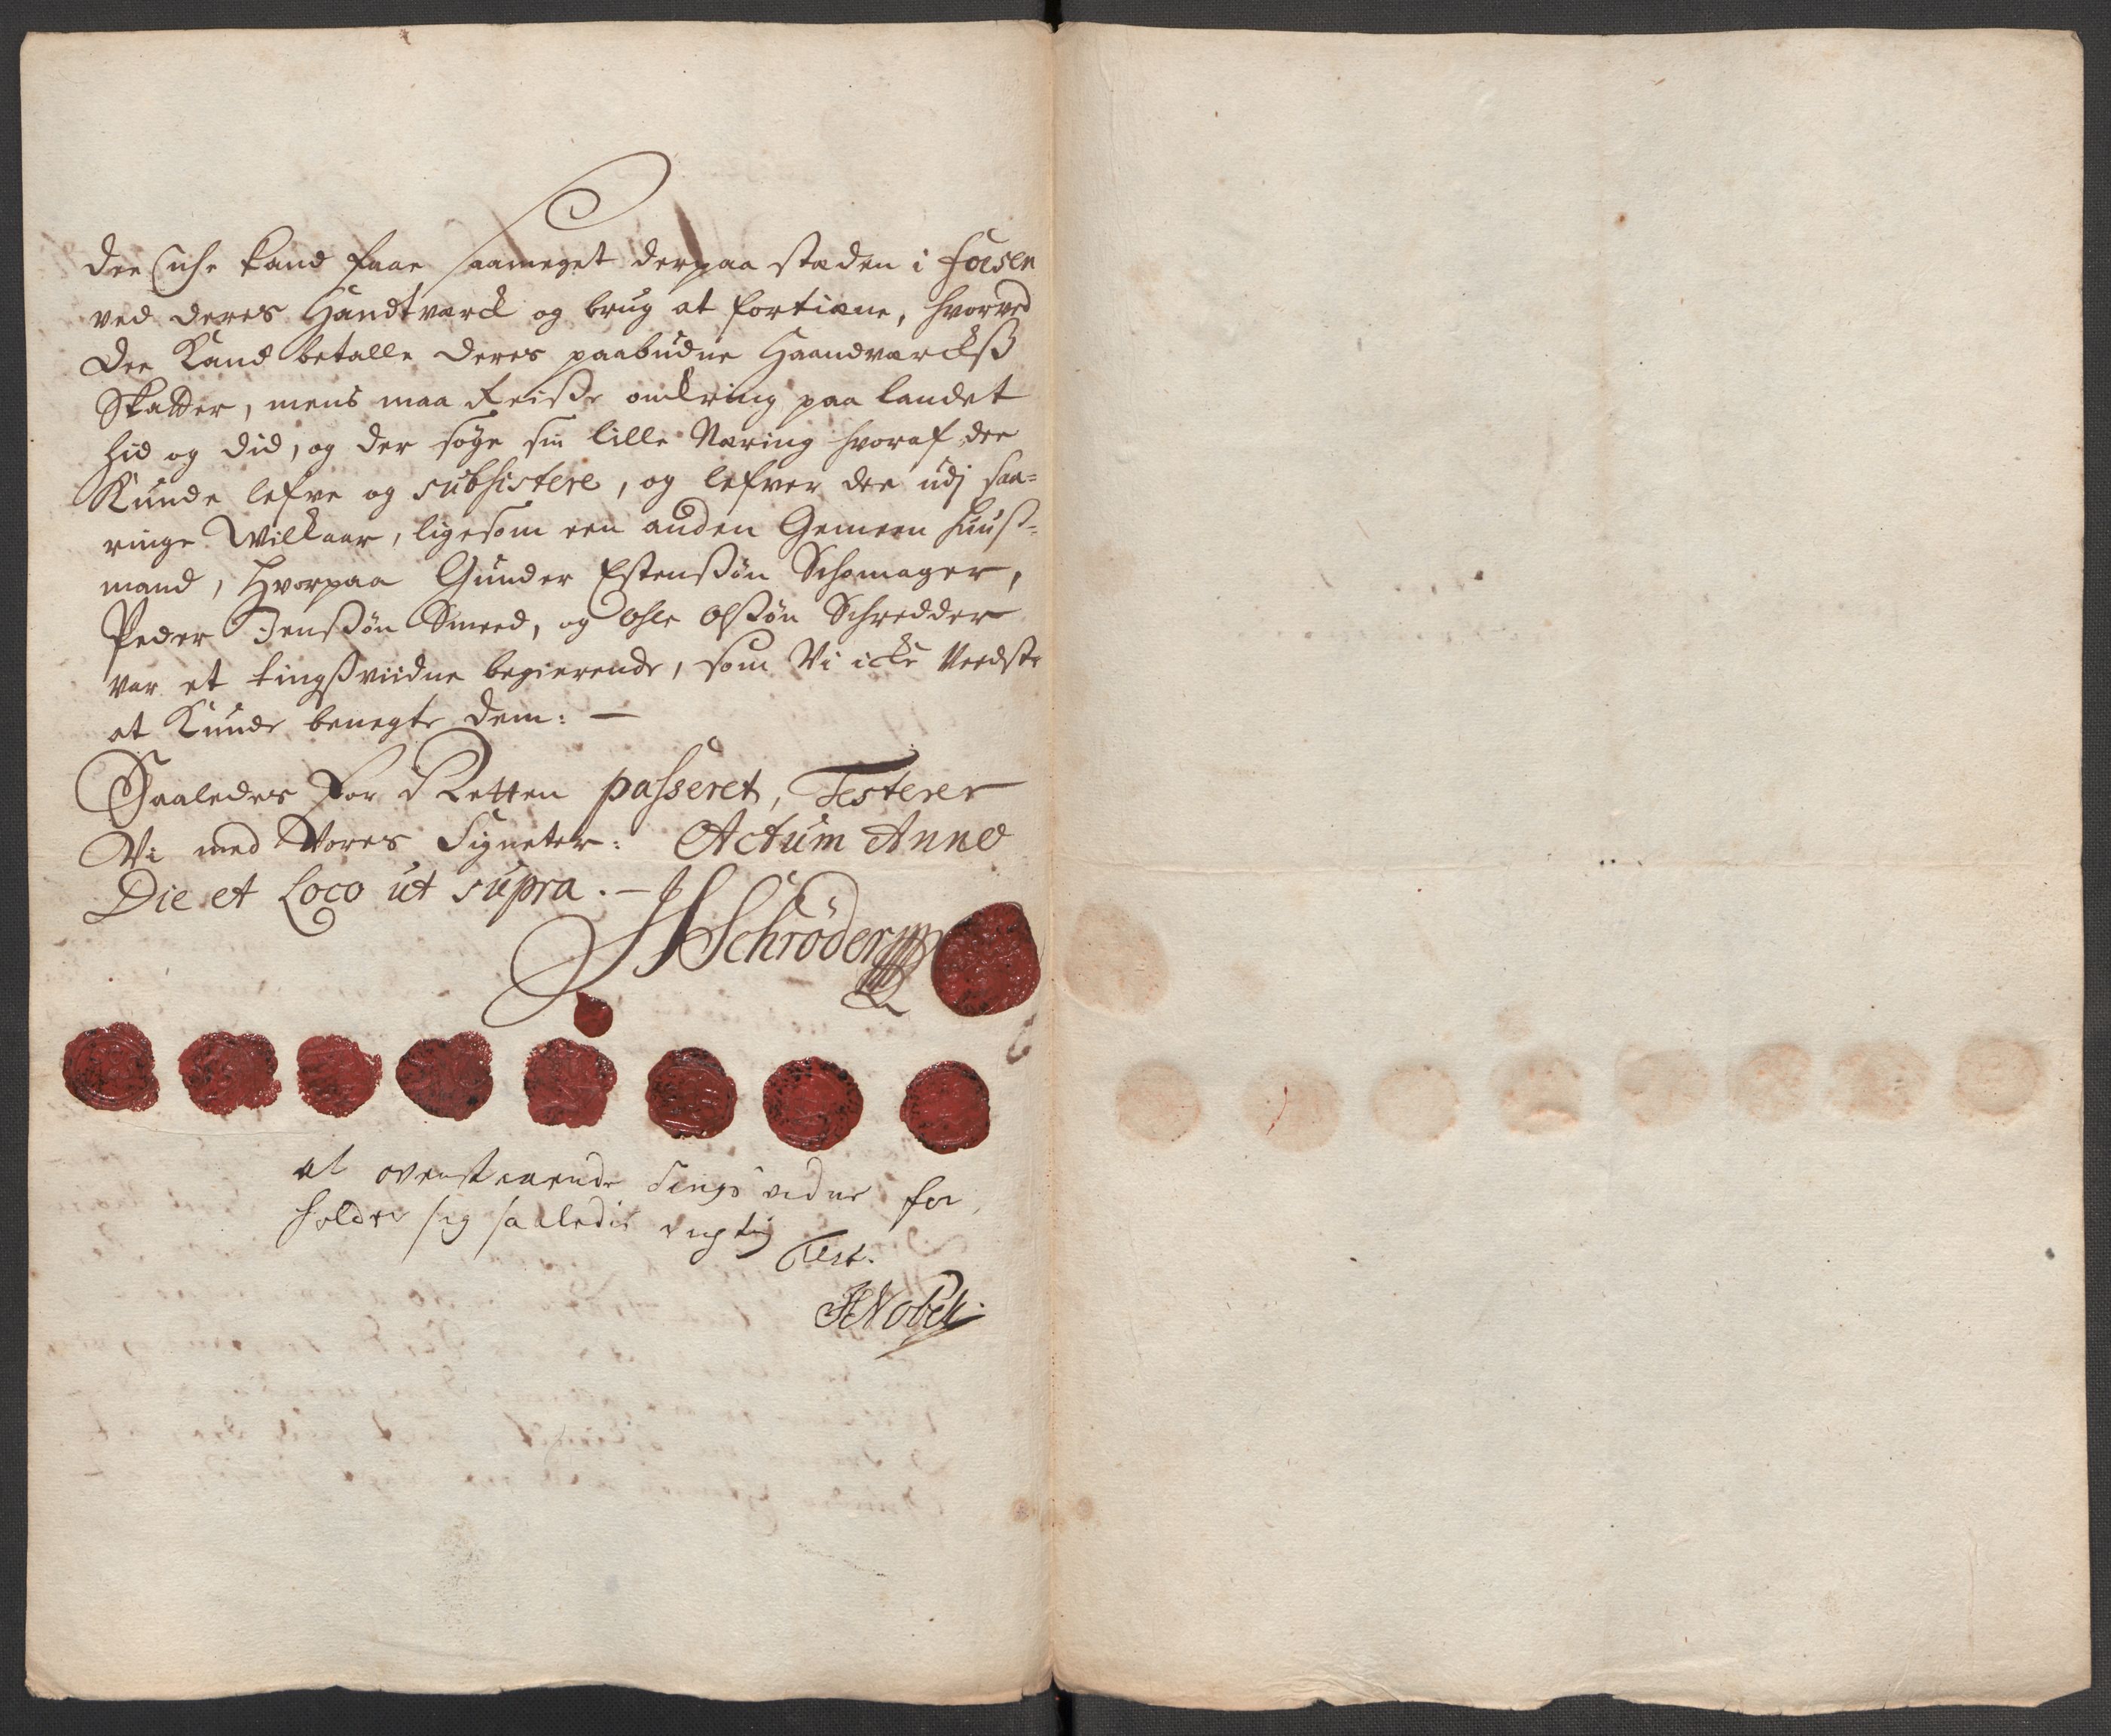 dee iche kand faae saameget derpaa staden i Foesen
ved deres Handtværck og brug at fortiæne, hvorved
dee Kand betalle deres paabudne Haandværckß
Skatter, mens maa Reiße omkring paa landet
hid og did, og der søge sin lille Næring hvoraf dee
Kunde lefve og subsistere, og lefver dee udj saa-
ringe Wilkaar, ligesom een anden Gemeen Huuß-
mand, Hvorpaa Gunder Estenßøn Schomager,
Peder Jenßøn Smeed, og Ohle Olßøn Schredder
var et tingßviidne begierende, som Vi icke Veedste
at Kunde benegte dem: —
Saaledes for Retten passeret, Testerer
Vi med Vores Signeter: Actum Anno
Die et Loco ut supra. —
Schrøder
at ovenstaaende Tings vidne for
holder sig saaledis rigtig
Test.